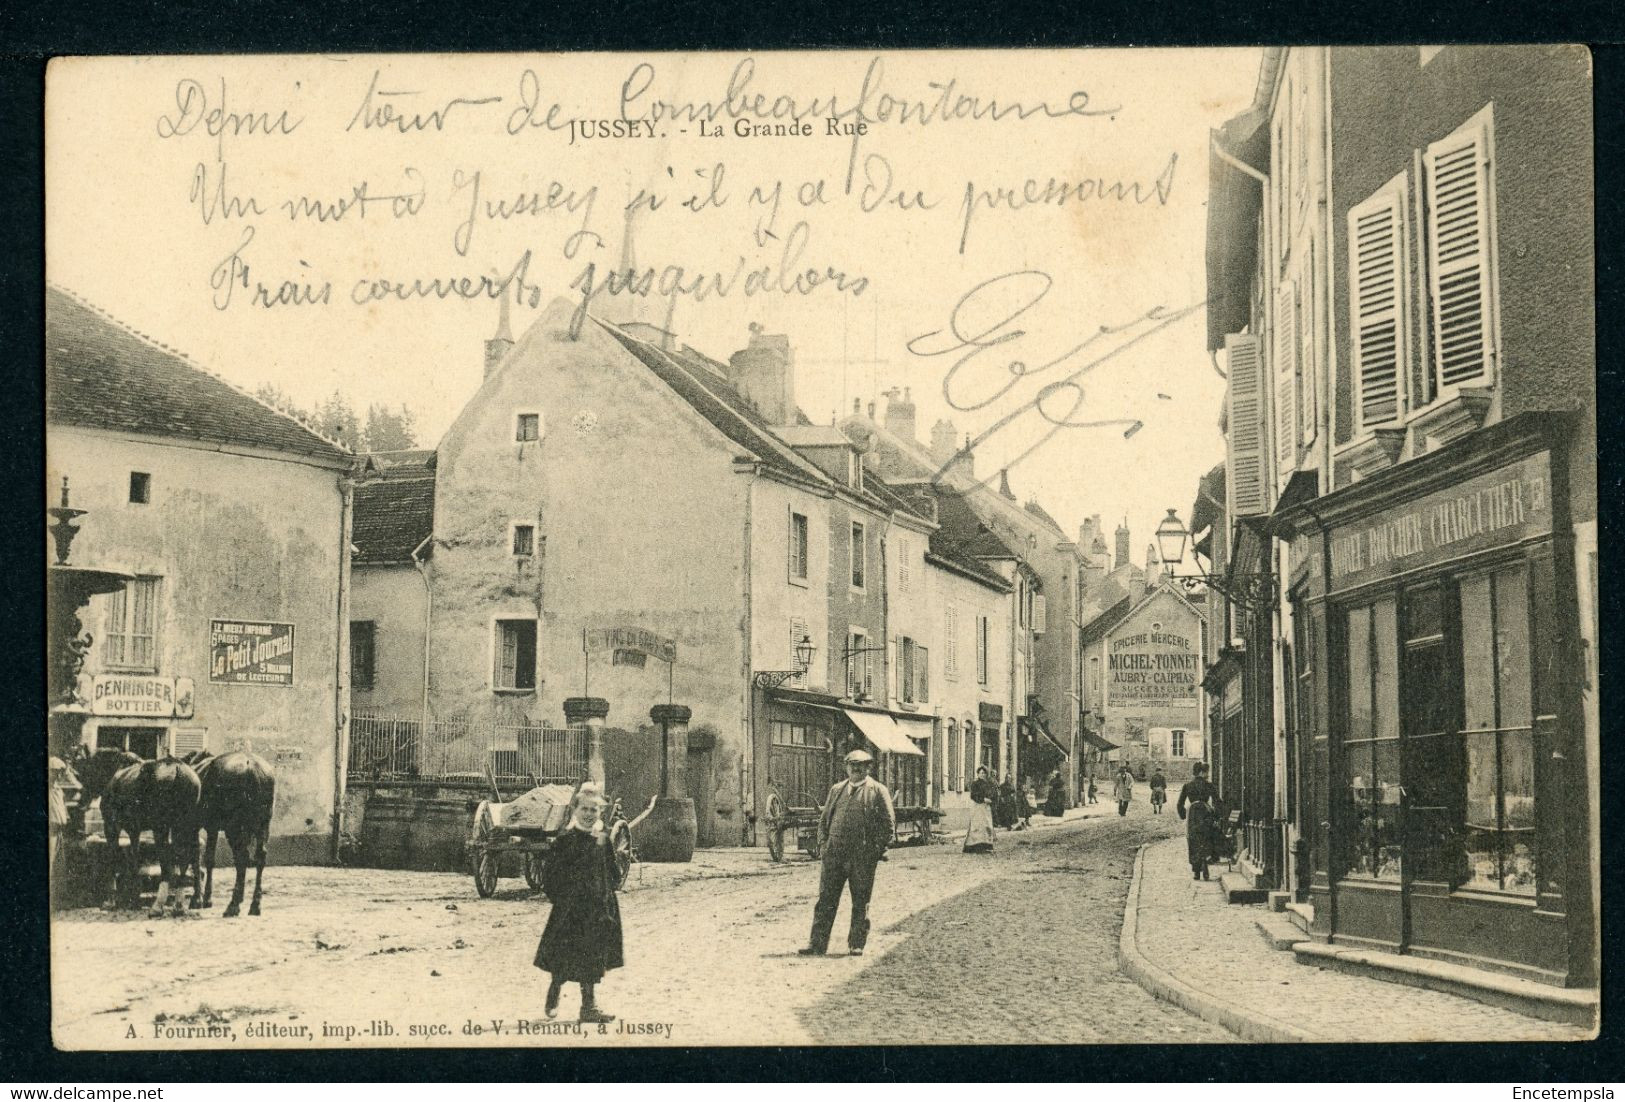 Demi tour de Combeaufontaine.
JUSSEY. - La Grande Rue
Un mot à Jussey s'il y a du pressant
Frais couverts jusqu'alors
LE MIEUX INFORMÉ
6 PAGES
Le Petit Journal
5
DE LECTEURS
DENNINGER
BOTTIER
VINS EN GROS
EPICERIE MERCERIE
MICHEL-TONNET
AUBRY-CAIPHAS
SUCCESSEUR
BOUCHER CHARCUTIER
A. Fournier, éditeur, imp.-lib. succ. de V. Renard, à Jussey
Delcampe.net
Encetempsla